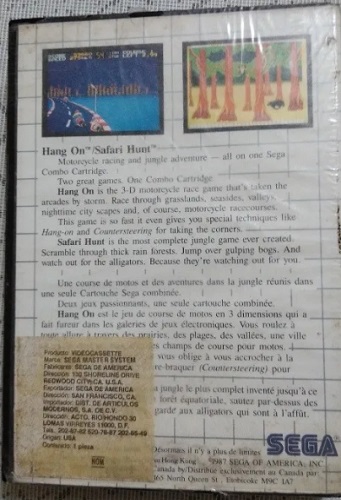 Hang On™/Safari Hunt™
Motorcycle racing and jungle adventure — all on one Sega
Combo Cartridge.
Two great games. One Combo Cartridge.
Hang On is the 3-D motorcycle race game that's taken the
arcades by storm. Race through grasslands, seasides, valleys,
nighttime city scapes and, of course, motorcycle racecourses.
This game is so fast it even gives you special techniques like
Hang-on and Countersteering for taking the corners.
Safari Hunt is the most complete jungle game ever created.
Scramble through thick rain forests. Jump over gulping bogs. And
watch out for the alligators. Because they're watching out for you.
Une course de motos et des aventures dans la jungle réunis dans
une seule Cartouche Sega combinée.
Deux jeux passionnants, une seule cartouche combinée.
Hang On est le jeu de course de motos en 3 dimensions qui a
fait fureur dans les galeries de jeux électroniques. Vous roulez à
toute allure à travers des prairies, des plages, des vallées, une ville
champs de course pour motos.
vous oblige à vous accrocher à la
re-braquer (Countersteering) pour
jungle le plus complet inventé jusqu'à ce
forêt équatoriale, sautez par-dessus des
garde aux alligators qui sont à l'affût.
Producto: VIDEOCASSETTE
Marca: SEGA MASTER SYSTEM
Fabricante: SEGA OF AMERICA
Dirección: 130 SHORELINE DRIVE
REDWOOD CITY, CA. U.S.A.
Exportador: SEGA OF AMERICA
Dirección: SAN FRANCISCO, CA.
Importador: DIST. DE ARTICULOS
MODERNOS, S.A. DE C.V.
Dirección:
LOMAS VIRREYES 11000, D.F.
Origen: USA
Contenido: 1 pieza
NOM
désormais il n'y a plus de limites
SEGA
Hong Kong ©1987 SEGA OF AMERICA, INC.
Canada by/Distribué exclusivement au Canada par:
Queen St., Etobicoke M9C 1A7